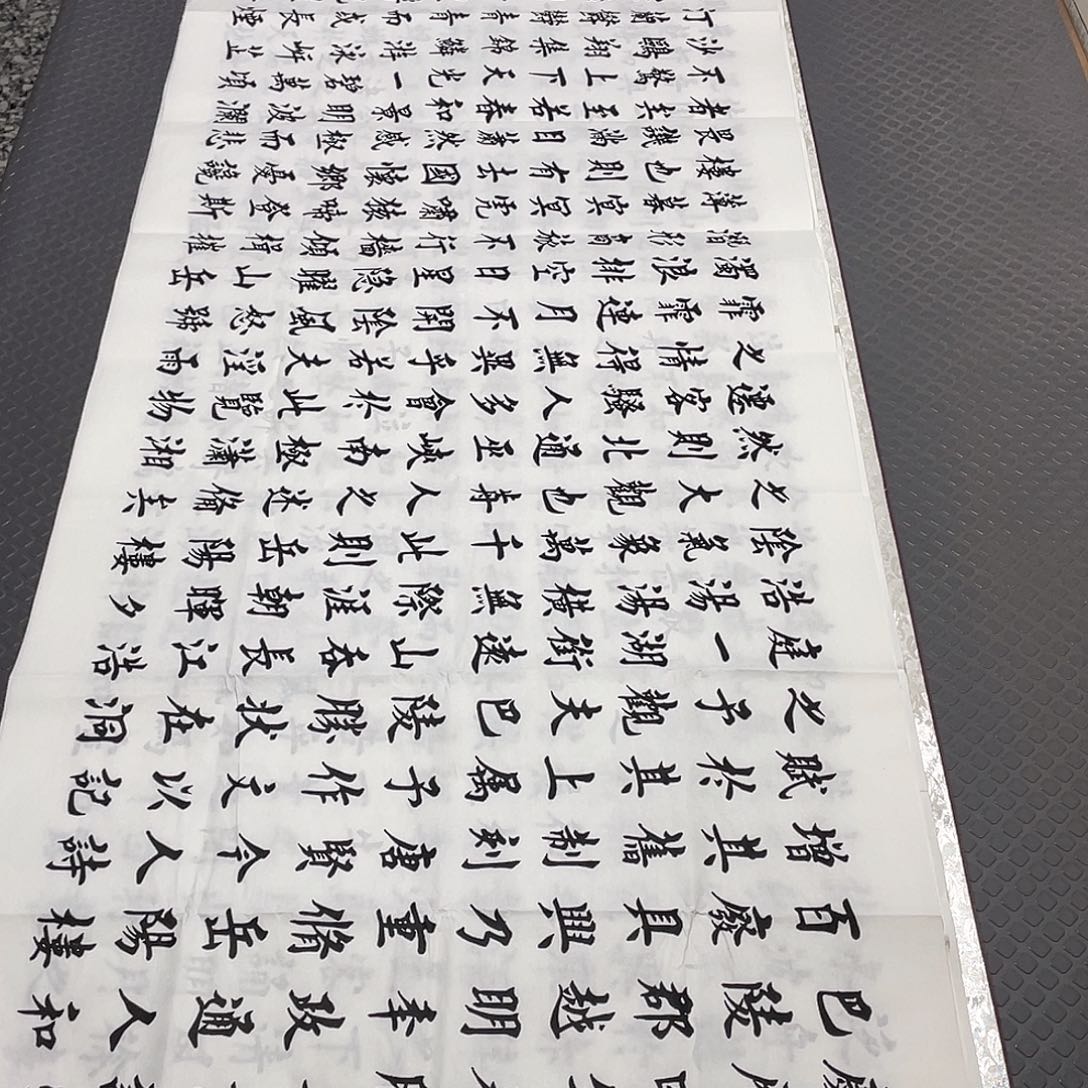 巴陵郡越明年政通人和
百廢具興乃重脩岳陽樓
增其舊制刻唐賢今人詩
賦於其上属予作文以記
之予觀夫巴陵勝狀在洞
庭一湖銜遠山吞長江浩
浩湯湯橫無際涯朝暉夕
陰氣象萬千此則岳陽樓
之大觀也前人之述備矣
然則北通巫峽南極瀟湘
遷客騷人多會於此覽物
之情得無異乎若夫淫雨
霏霏連月不開陰風怒號
濁浪排空日星隱曜山岳
潛形商旅不行檣傾楫摧
薄暮冥冥虎嘯猿啼登斯
樓也則有去國懷鄉憂讒
畏譏滿目蕭然感極而悲
者矣至若春和景明波瀾
不驚上下天光一碧萬頃
沙鷗翔集錦鱗游泳岸芷
汀蘭鬱鬱青青而或長煙